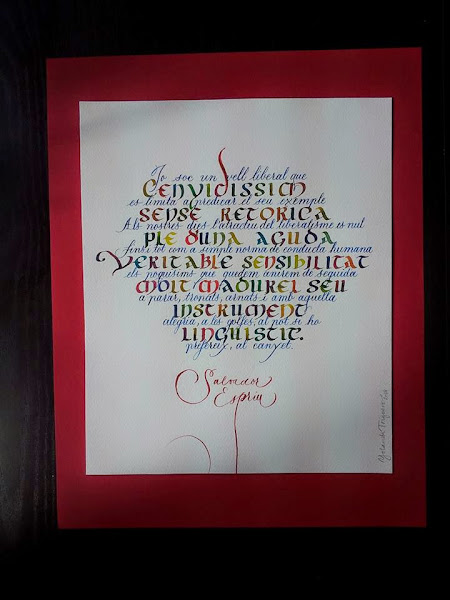 Jo soc un vell liberal que
CENVIDISSIM
es limita a predicar el seu exemple
SENSE RETORICA
Als nostres dies l'atractiu del liberalisme es nul
PLE D'UNA AGUDA
fins i tot com a simple norma de conducta humana
VERITABLE SENSIBILITAT
els poquissims que quedem anirem de seguida
MOLT MADUREI SEU
a parar, tronats, arnats i amb aquella
INSTRUMENT
alegria, a les golfes, al pot si ho
LINGÜISTIC.
prefereix, al canyet.
Salvador
Espriu